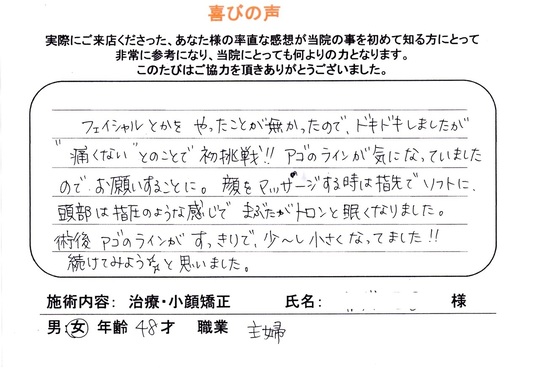 喜びの声
実際にご来店くださった、あなた様の率直な感想が当院の事を初めて知る方にとって
非常に参考になり、当院にとっても何よりの力となります。
このたびはご協力を頂きありがとうございました。
フェイシャルとかを やったことが無かったので、ドキドキしましたが
"痛くない"とのことで 初挑戦!! アゴのラインが気になっていました
ので お願いすることに。顔をマッサージする時は指先でソフトに、
頭部は指圧のような感じで まぶたがトロンと眠くなりました。
術後 アゴのラインが すっきりで、少〜し小さくなってました!!
続けてみようかなと思いました。
施術内容: 治療・小顔矯正 氏名: 様
男・女 年齢 48才 職業 主婦